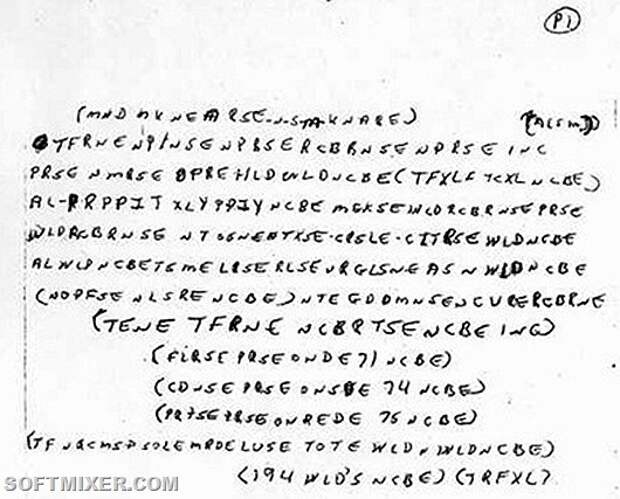 P1
(MND MKNEARSE-N-S-M-KNARE) (ACSM)
TFRNENPINSENPRSERCBRNSENPRSE INC
PRSE NMRSE OPREHLDWLDNCBE (TFXLF TCXL NCBE)
AL-PRPPIT XLYPPIY NCBE MGKSE WLDRCBRNSE PRSE
WLDRCBRNSE NTOSNENTXSE-CRSLE-CITRSE WLDNCBE
ALWLDNCBETSMELRSERLSEURGLSNEASNWLDNCBE
(NOPFSE NLSRE NCBE) NTEGDDMNSENCURERCBRNE
(TENE TFRNE NCBRTSE NCBE INC)
(FLRSE PRSE ONDE 71 NCBE)
(CDNSE PRSE ONSDE 74 NCBE)
(PRTSE PRSE ONREDE 75 NCBE)
(TFNQCMSP SOLE MRDELUSE TOTE WLD N WLDNCBE)
(194 WLD'S NCBE) (TRFXL)
SOFTMIXER.COM